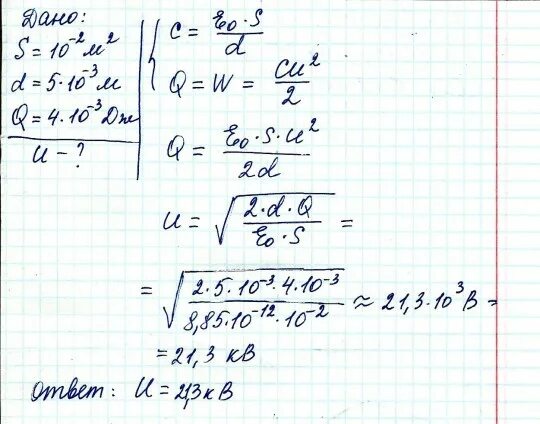 Дано:
S = 10⁻² м²
d = 5·10⁻³ м
Q = 4·10⁻³ Дж
U - ?
C = ε₀·S / d
Q = W = CU² / 2
Q = ε₀·S·U² / 2d
U = √(2·d·Q / ε₀·S) =
= √(2·5·10⁻³·4·10⁻³ / 8,85·10⁻¹²·10⁻²) ≈ 21,3·10³ В =
= 21,3 кВ
Ответ: U = 21,3 кВ